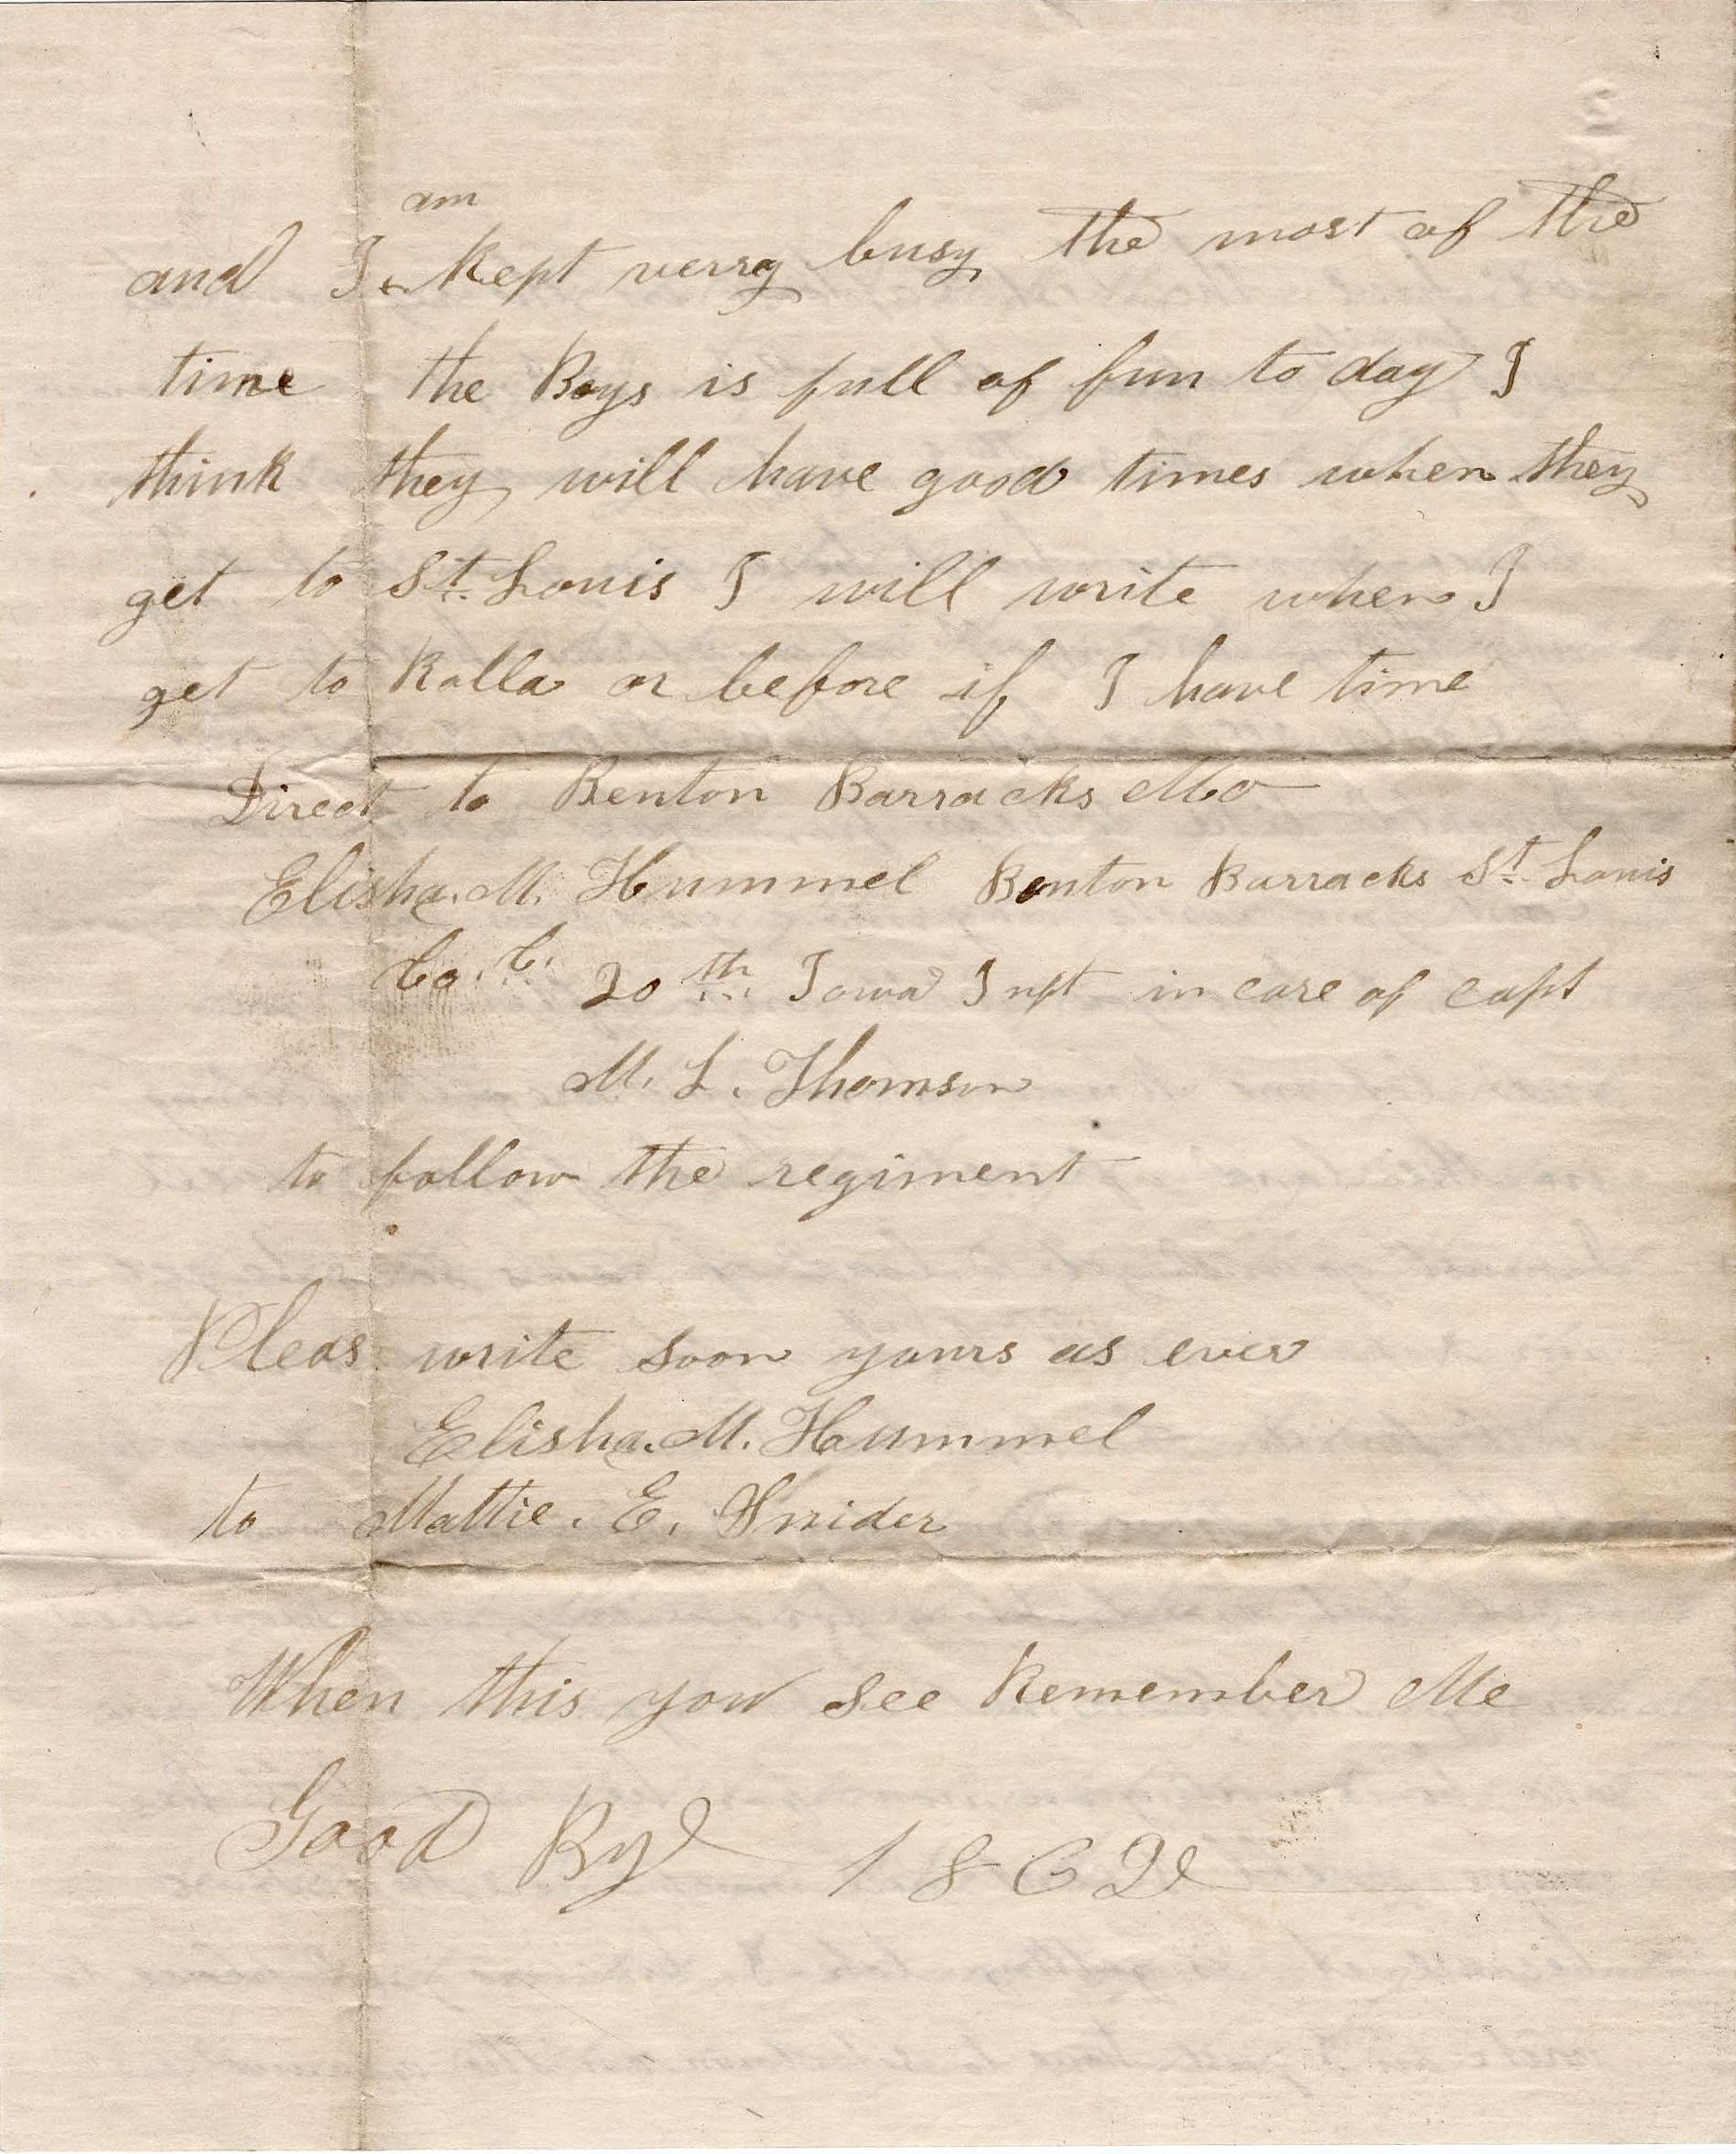 am
and I kept verry busy the most of the
time the Boys is full of fun to day I
think they will have good times when they
get to St. Louis I will write when I
get to Rolla or before if I have time
Direct to Benton Barracks Mo
Elisha. M. Hummel Benton Barracks St. Louis
Co. C. 20th Iowa Inft in care of capt
M. L. Thomson
to follow the regiment
Pleas write soon yours as ever
Elisha. M. Hummel
to Mattie. E. Snider
When this you see Remember Me
Good Bye 1862